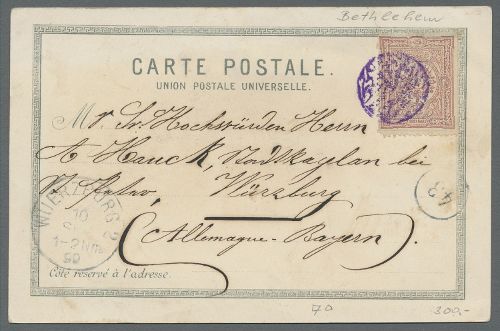 Bethlehem
CARTE POSTALE.
UNION POSTALE UNIVERSELLE.
M r. Sr. Hochwürden Herrn
A Hauck, Stadtkaplan bei
St. Peter, Würzburg
(Allemagne-Bayern)
WUERZBURG 2
10
1-2 Nm
99
43
Côté réservé à l'adresse.
70 300,-